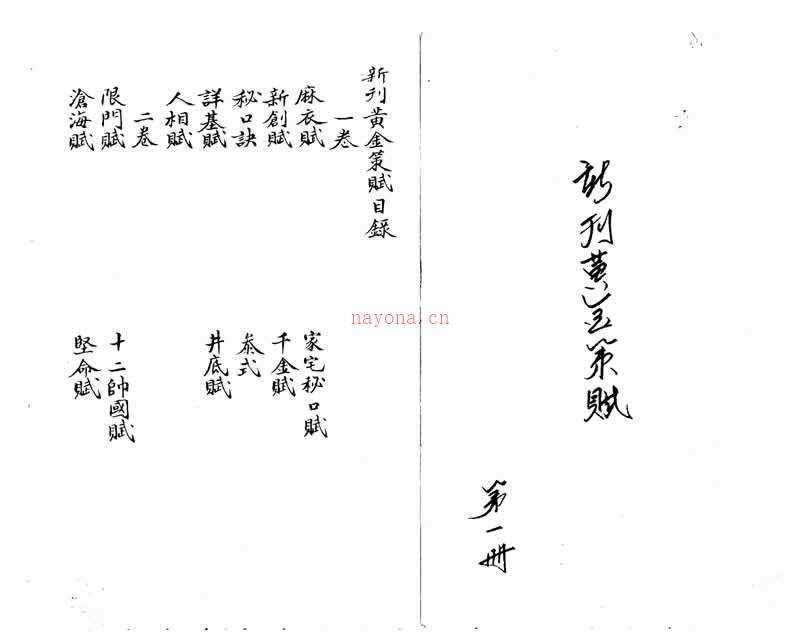 新刊黃金策賦
第一冊
新刊黃金策賦目錄
一卷
麻衣賦
家宅秘口賦
新創賦
千金賦
秘口訣
泰式
詳基賦
井底賦
人相賦
二卷
限門賦
十二帥國賦
滄海賦
堅命賦
nayona.cn